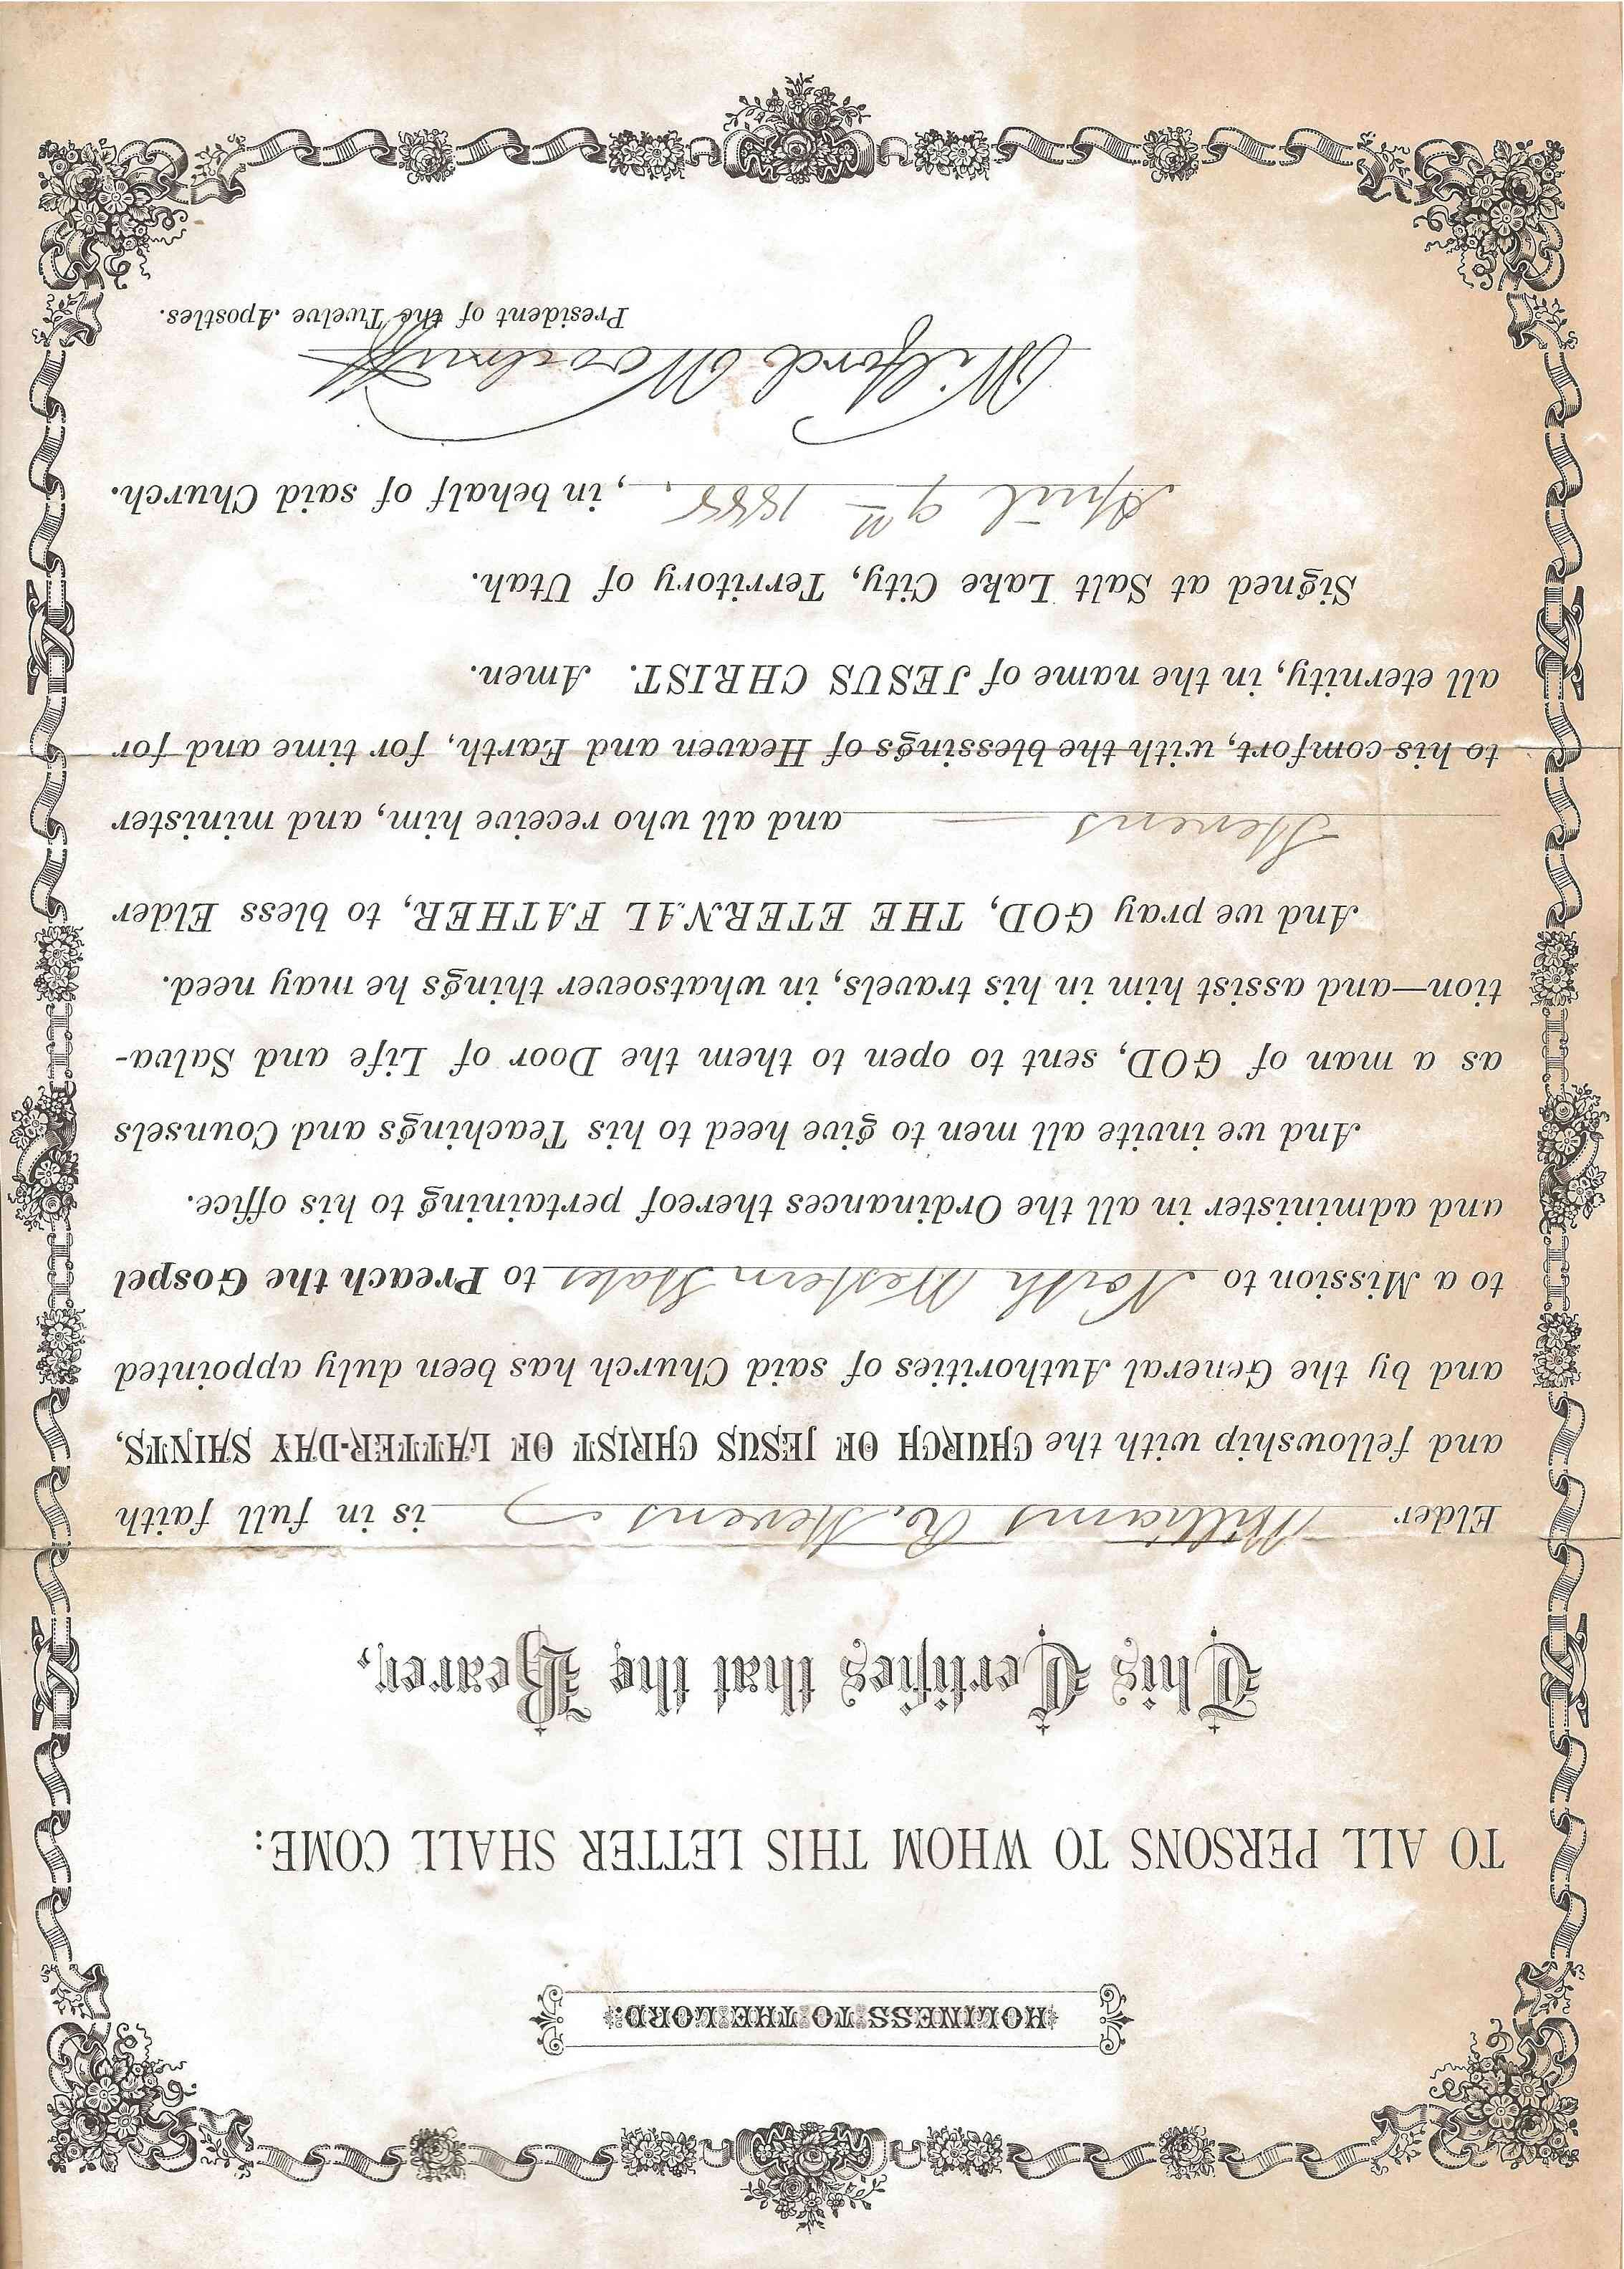 HOLINESS TO THE LORD.
TO ALL PERSONS TO WHOM THIS LETTER SHALL COME:
This Certifies that the Bearer,
Elder Williams R. Stevens is in full faith
and fellowship with the CHURCH OF JESUS CHRIST OF LATTER-DAY SAINTS,
and by the General Authorities of said Church has been duly appointed
to a Mission to North Western States to Preach the Gospel
and administer in all the Ordinances thereof pertaining to his office.
And we invite all men to give heed to his Teachings and Counsels
as a man of GOD, sent to open to them the Door of Life and Salva-
tion—and assist him in his travels, in whatsoever things he may need.
And we pray GOD, THE ETERNAL FATHER, to bless Elder
Stevens and all who receive him, and minister
to his comfort, with the blessings of Heaven and Earth, for time and for
all eternity, in the name of JESUS CHRIST. Amen.
Signed at Salt Lake City, Territory of Utah.
April 9th 1888, in behalf of said Church.
Wilford Woodruff
President of the Twelve Apostles.